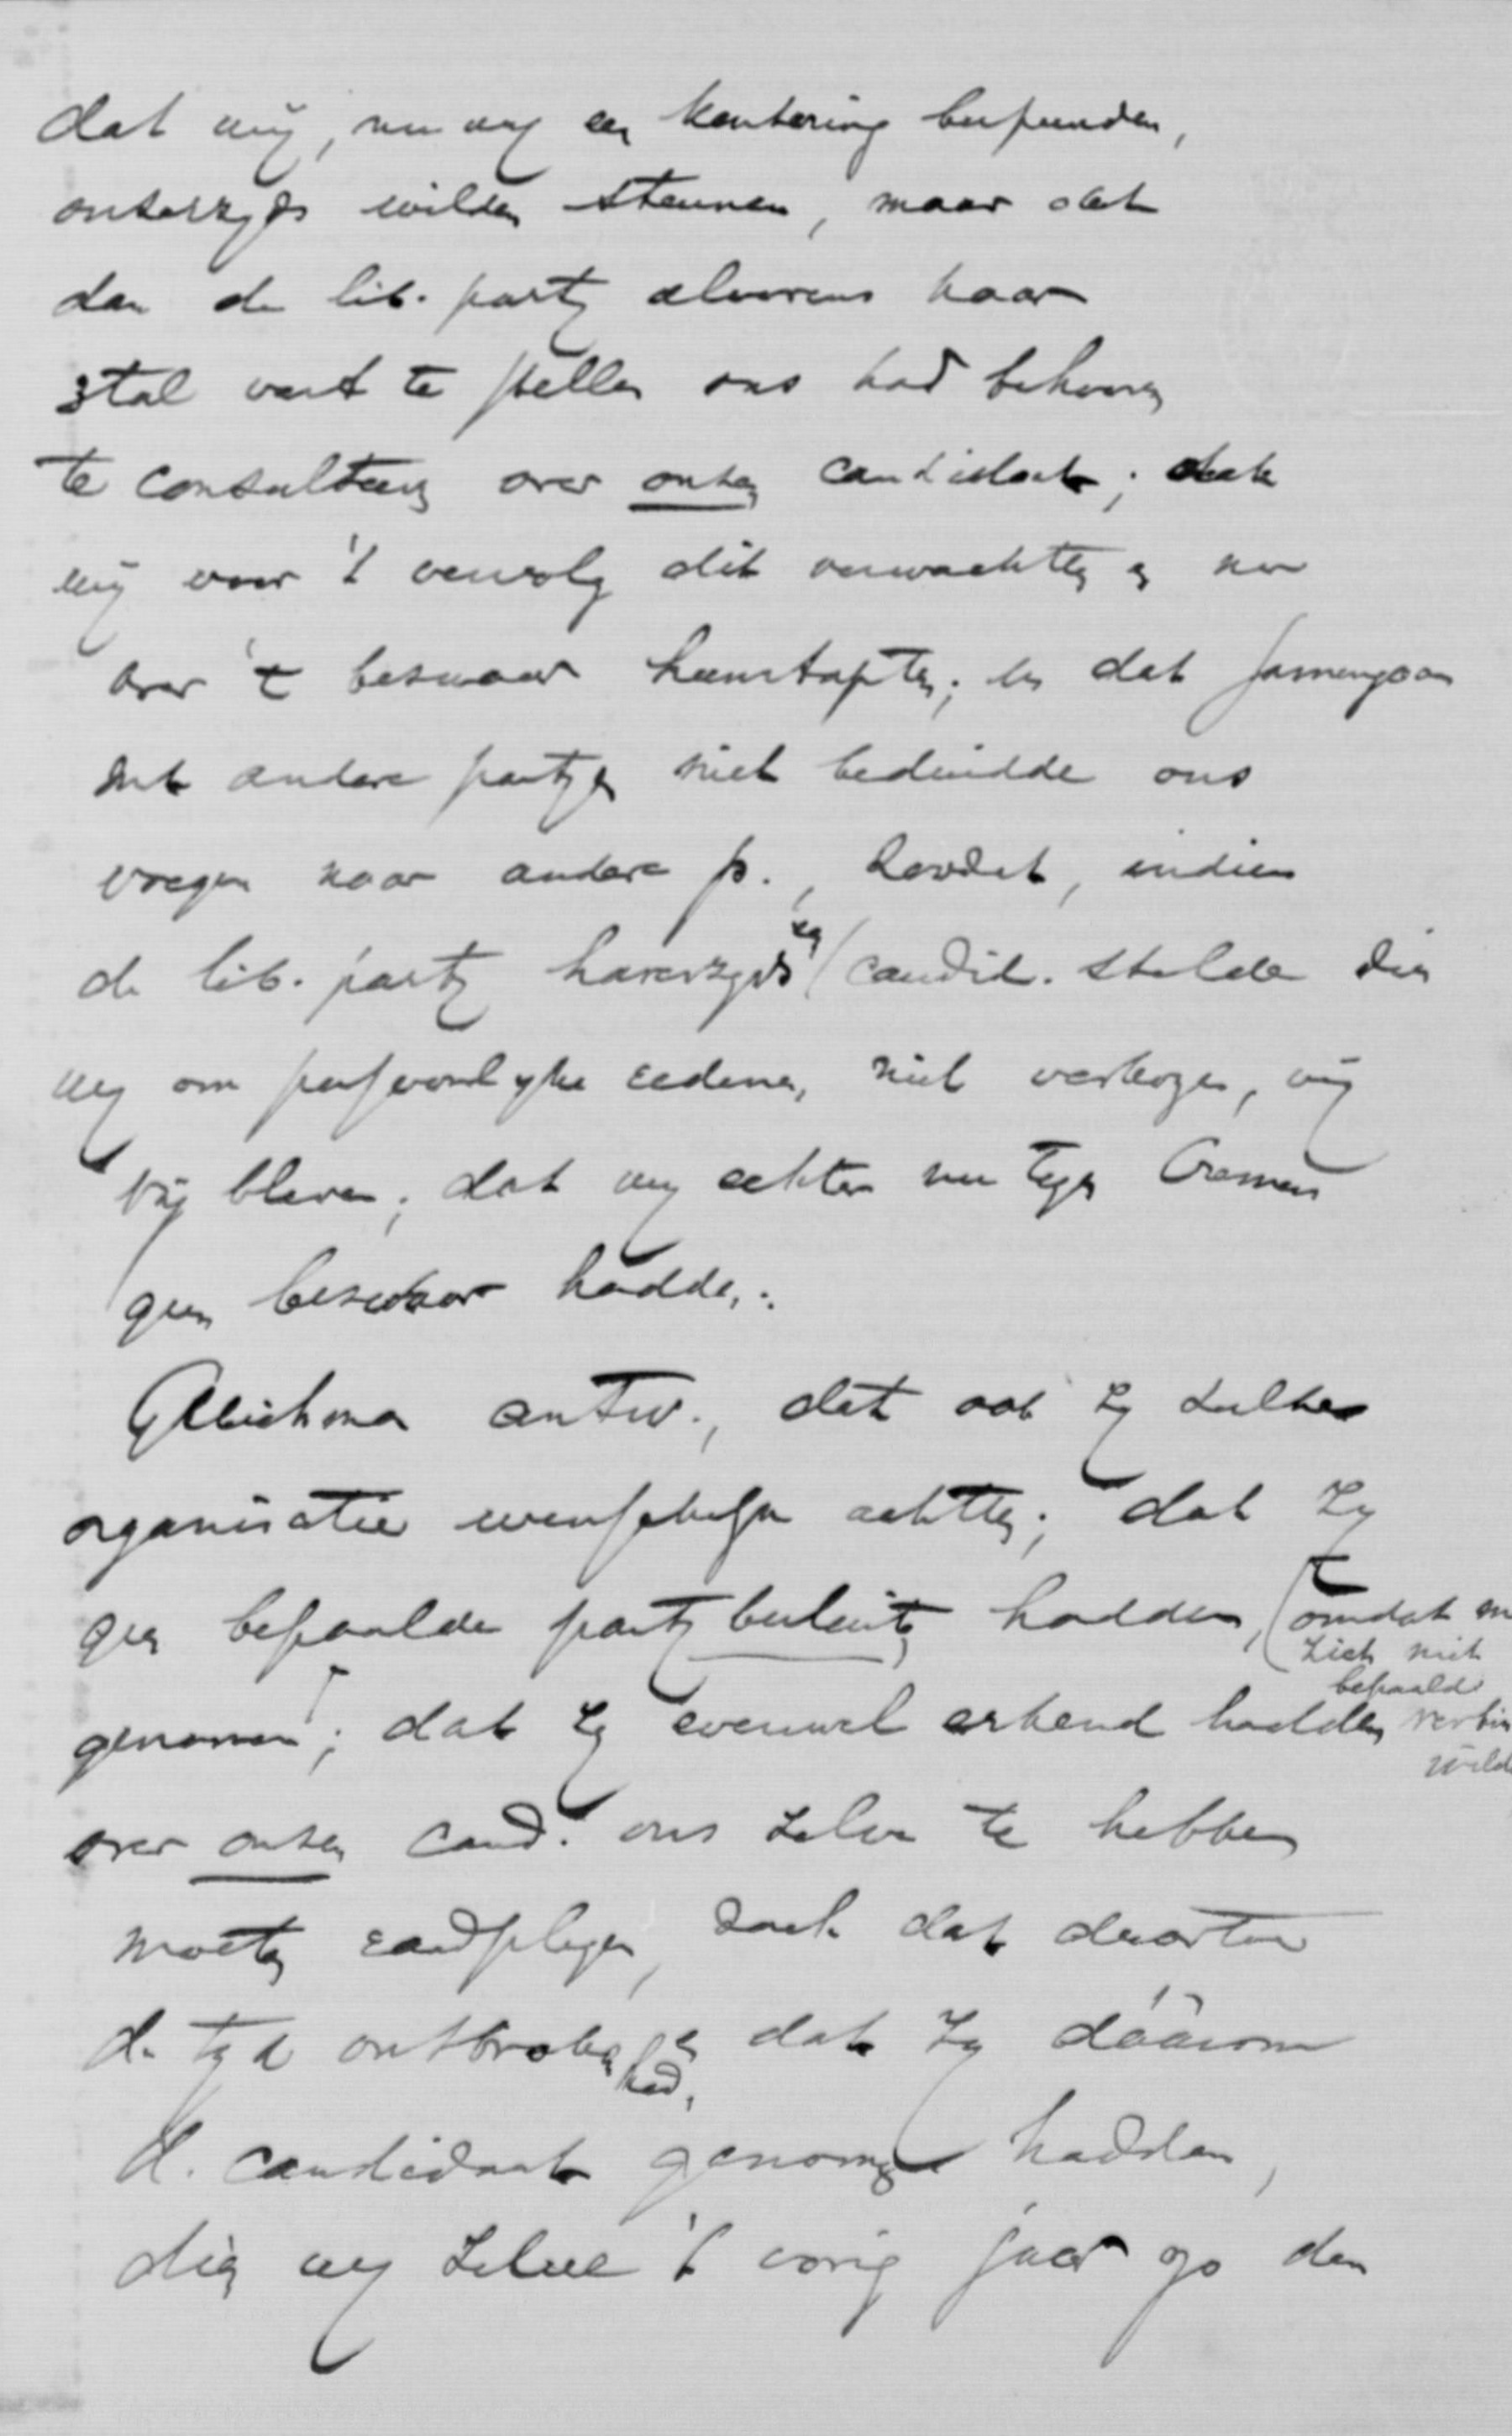 dat wij, nu wij een kentering bespeurden,
onzerzijds wilden steunen, maar dat
dan de lib. partij alvorens haar
3tal vast te stellen ons had behooren
te consulteeren over onzen candidaat; dat
wij voor 't vervolg dit verwachtten en nu
over 't bezwaar heenstapten; en dat samengaan
met andere partijen niet beduidde ons
voegen naar andere p., zoodat, indien
de lib. partij harerzijds een candid. stelde dien
wij om persoonlijke redenen, niet verkozen, wij
vrij bleven; dat wij echter nu tegen Cremer
geen bezwaar hadden.
Gleichman antw., dat ook zij zulke
organisatie wenschelijk achtten; dat zij
geen bepaalde partij besluiten hadden, (omdat m
zich niet
bepaald
genomen; dat zij evenwel erkend hadden
wilde
over onzen cand. ons zelve te hebben
moeten raadplegen, doch dat daartoe
de tijd ontbroken had, en dat zij dáárom
d. candidaat genomen hadden,
dien wij zelve 't vorig jaar op den